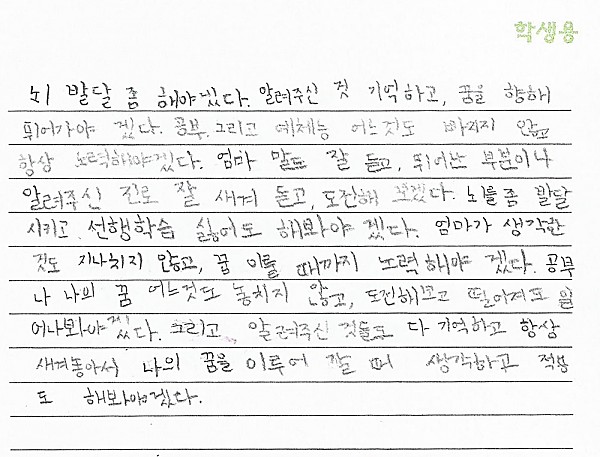 학생용
뇌 발달 좀 해야겠다. 알려주신 것 기억하고, 꿈을 향해
뛰어가야 겠다. 공부, 그리고 예체능 어느것도 빠지지 않고
항상 노력해야겠다. 엄마 말도 잘 듣고, 뛰어난 부분이나
알려주신 진로 잘 새겨 듣고, 도전해 보겠다. 뇌를 좀 발달
시키고 선행학습 싫어도 해봐야 겠다. 엄마가 생각한
것도 지나치지 않고, 꿈 이룰 때까지 노력해야 겠다. 공부
나 나의 꿈 어느것도 놓치지 않고, 도전해보고 떨어져도 일
어나봐야겠다. 그리고 알려주신 것들도 다 기억하고 항상
새겨놓아서 나의 꿈을 이루어 갈 때 생각하고 적용
도 해봐야겠다.